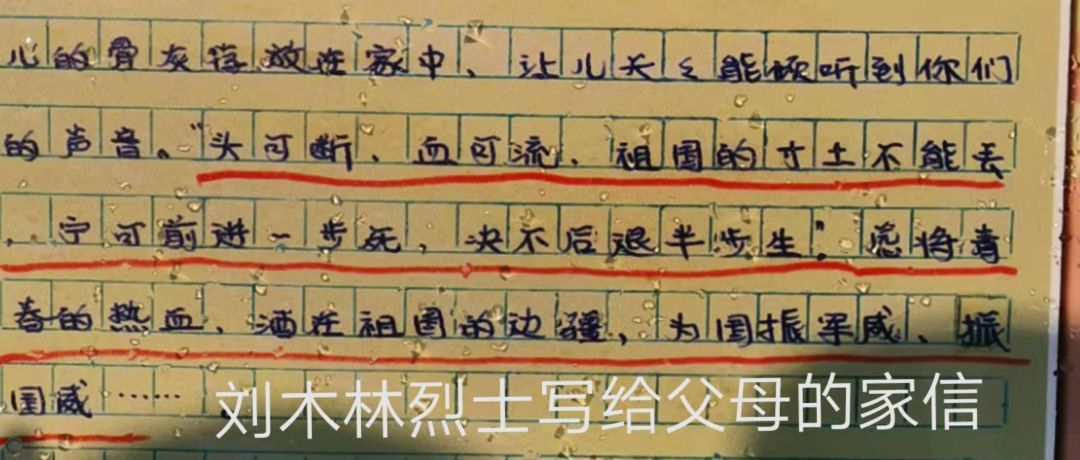 儿的骨灰存放在家中、让儿天天能颂听到你们
的声音。“头可断、血可流、祖国的寸土不能丢
、宁可前进一步死，决不后退半步生”。愿将青
春的热血、洒在祖国的边疆，为国振军威、振
国威……
刘木林烈士写给父母的家信